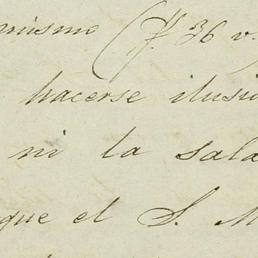 mismo (f. 36 v.
hacerse ilusi
ni la sala
que el S. M